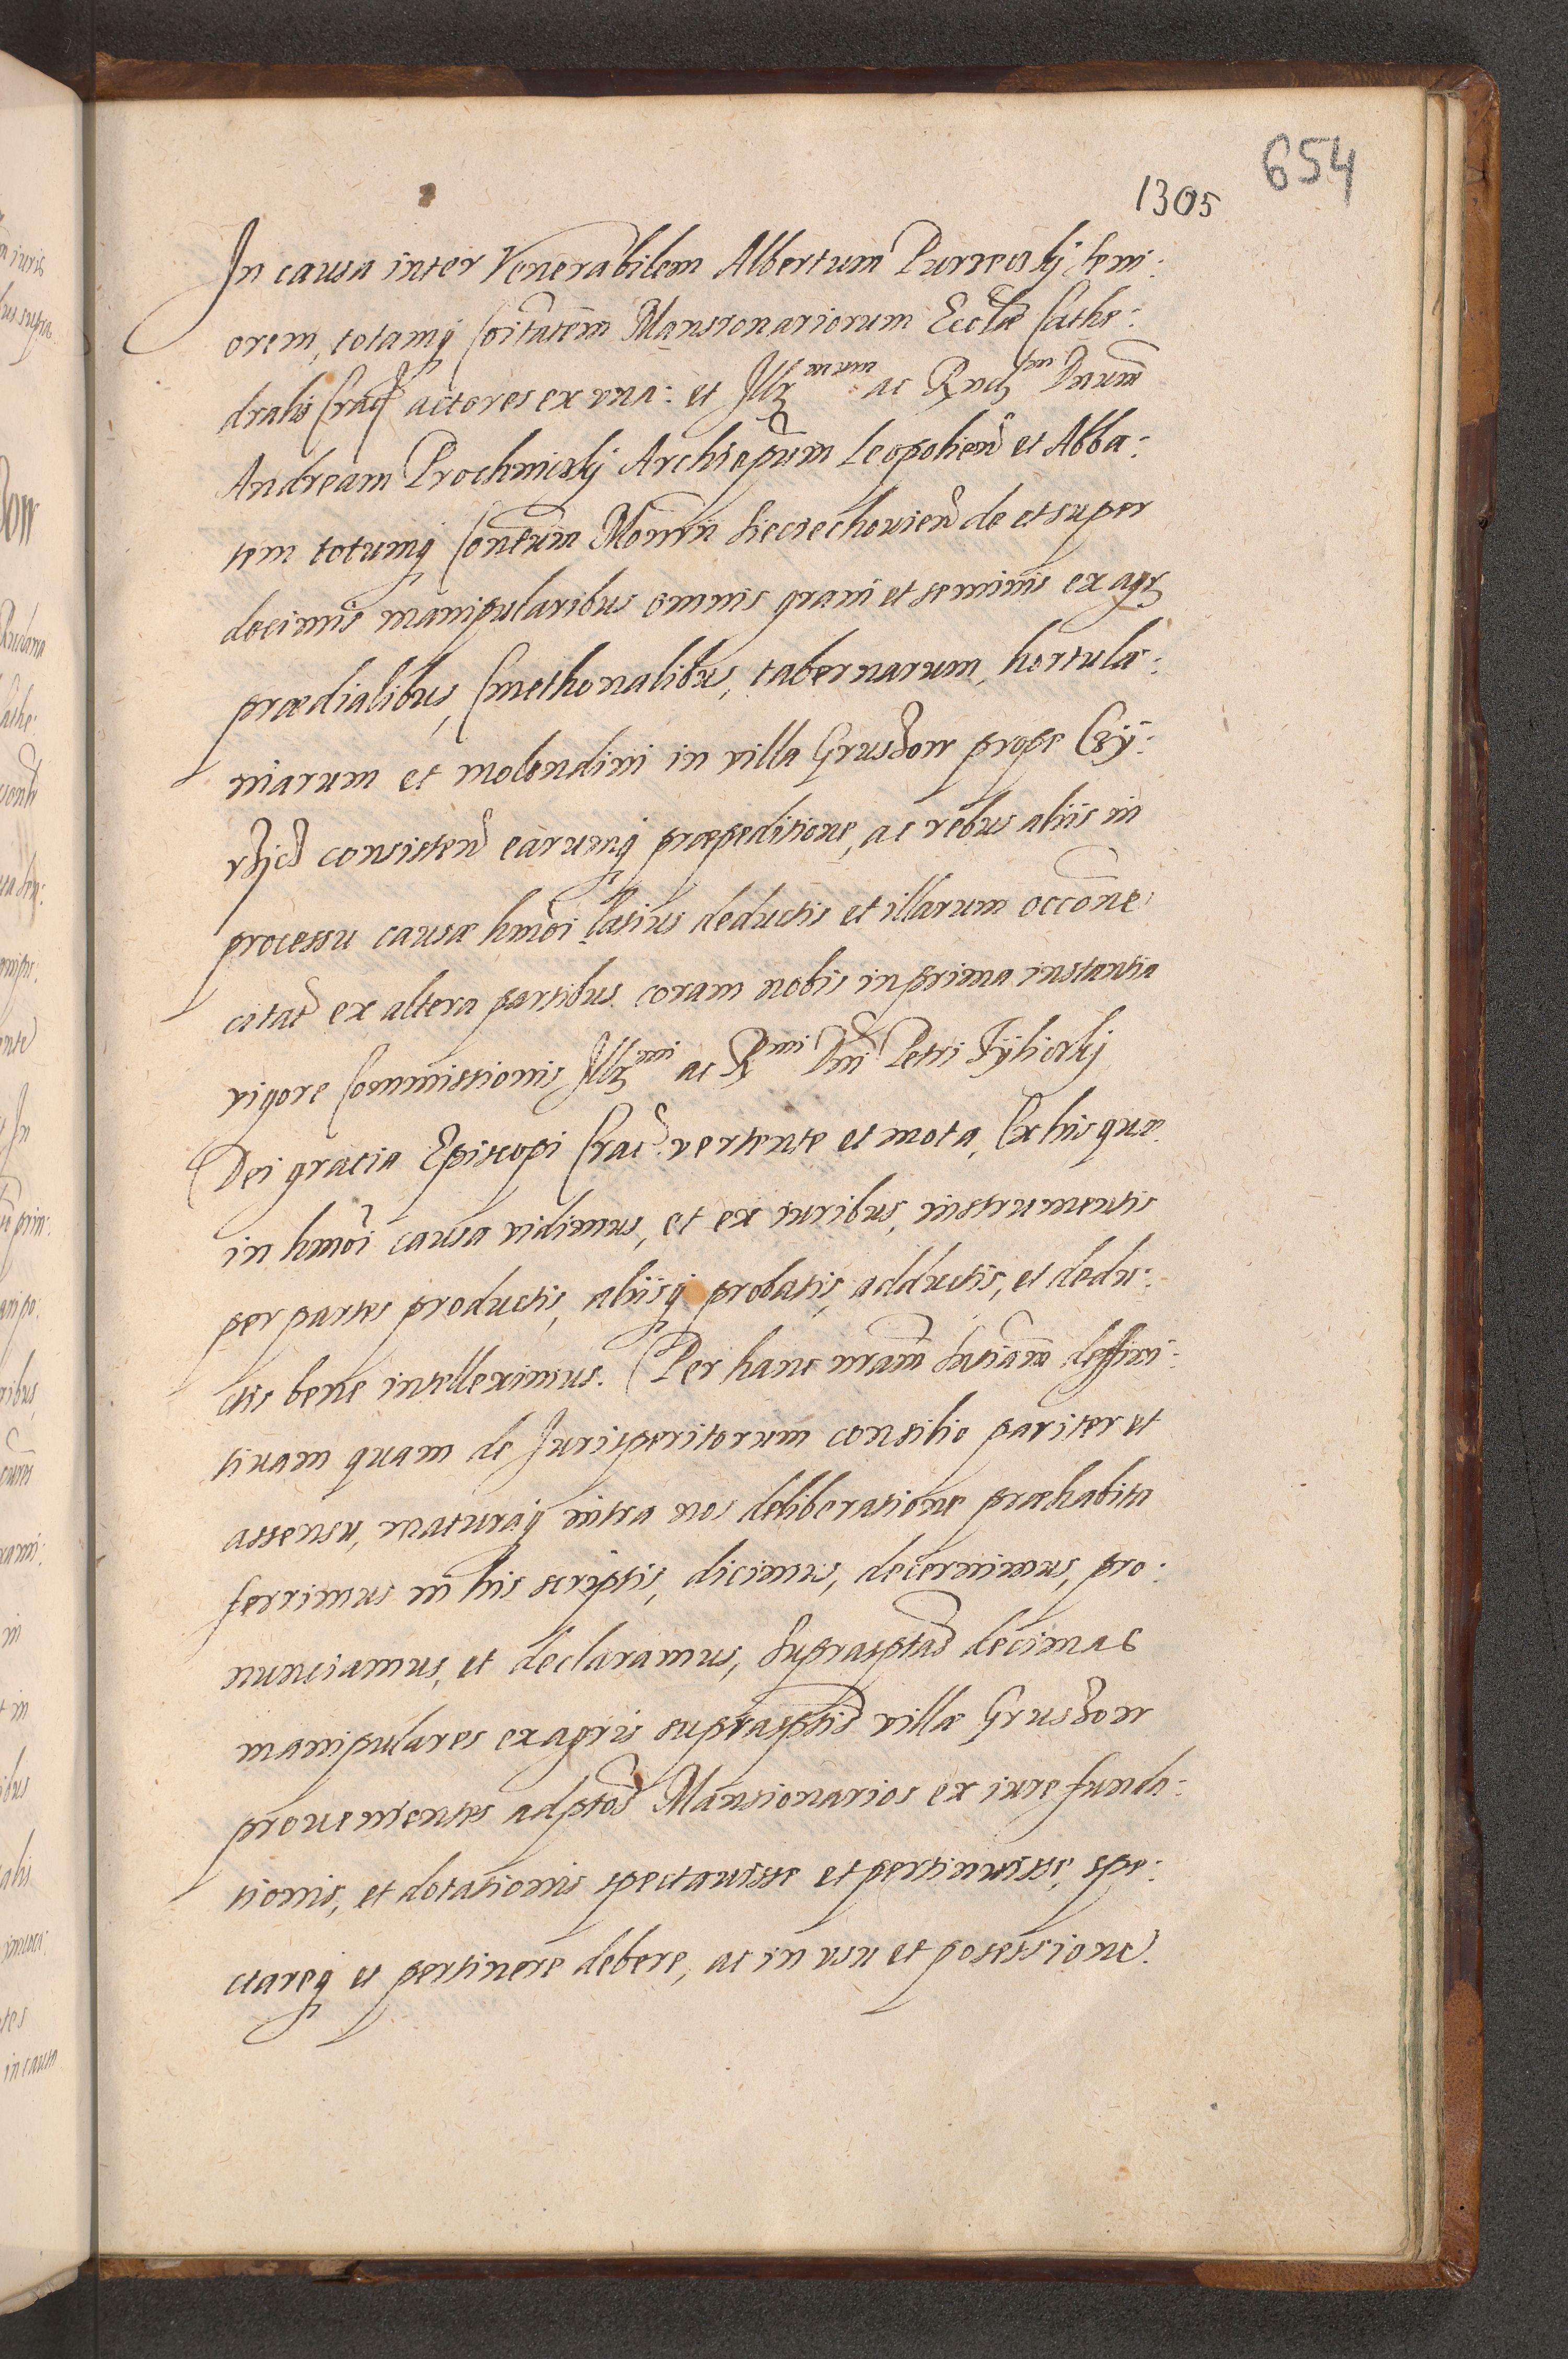 654
1305
In causa inter Venerabilem Albertum Purzeczkj seni:
orem, totamq Coitatem Mansionariorum Eccla Cathe:
dralis Crac actores ex vna: et Illr mum ac Rnd sm Dnum
Andream Prochniczkj Archiepum Leopolien et Abba:
tem totumq Conentum Monrij Sieciechouien de et super
decimis manipularibus omnis grani et seminis ex agr
prædialibus, Cmethonalibus, tabernarum, hortula:
niarum et molendini in villa Gruszow prope Czÿ:
rzicz consisten earumq præpeditione, ac rebus aliis in
processu causæ hmoi latius deductis et illarum occone
citat ex altera partibus coram nobis in prima instantia
vigore Commissionis Illr mi ac R mi Dni Petri Tÿliczkj
Dei gratia Episcopi Crac vertente et mota, Ex his quæ
in hmoi causa vidimus, et ex iuribus, instrumentis
per partes productis, aliisq probatis, adductis, et dedu:
ctis bene intelleximus. Per hanc nram sntiam deffini:
tiuam quam de Jurisperitorum consilio pariter et
assensu, maturaq intra nos deliberatione præhabita
ferrimus in his scriptis, dicimus, decernimus, pro:
nunciamus, et declaramus, supraśptas decimas
manipulares ex agris supraśptis villæ Gruszow
prouenientes ad ptos Mansionarios ex iure funda:
tionis, et dotationis spectauisse et pertinuisse, spe:
ctareq et pertinere debere, ac in vsu et posessione